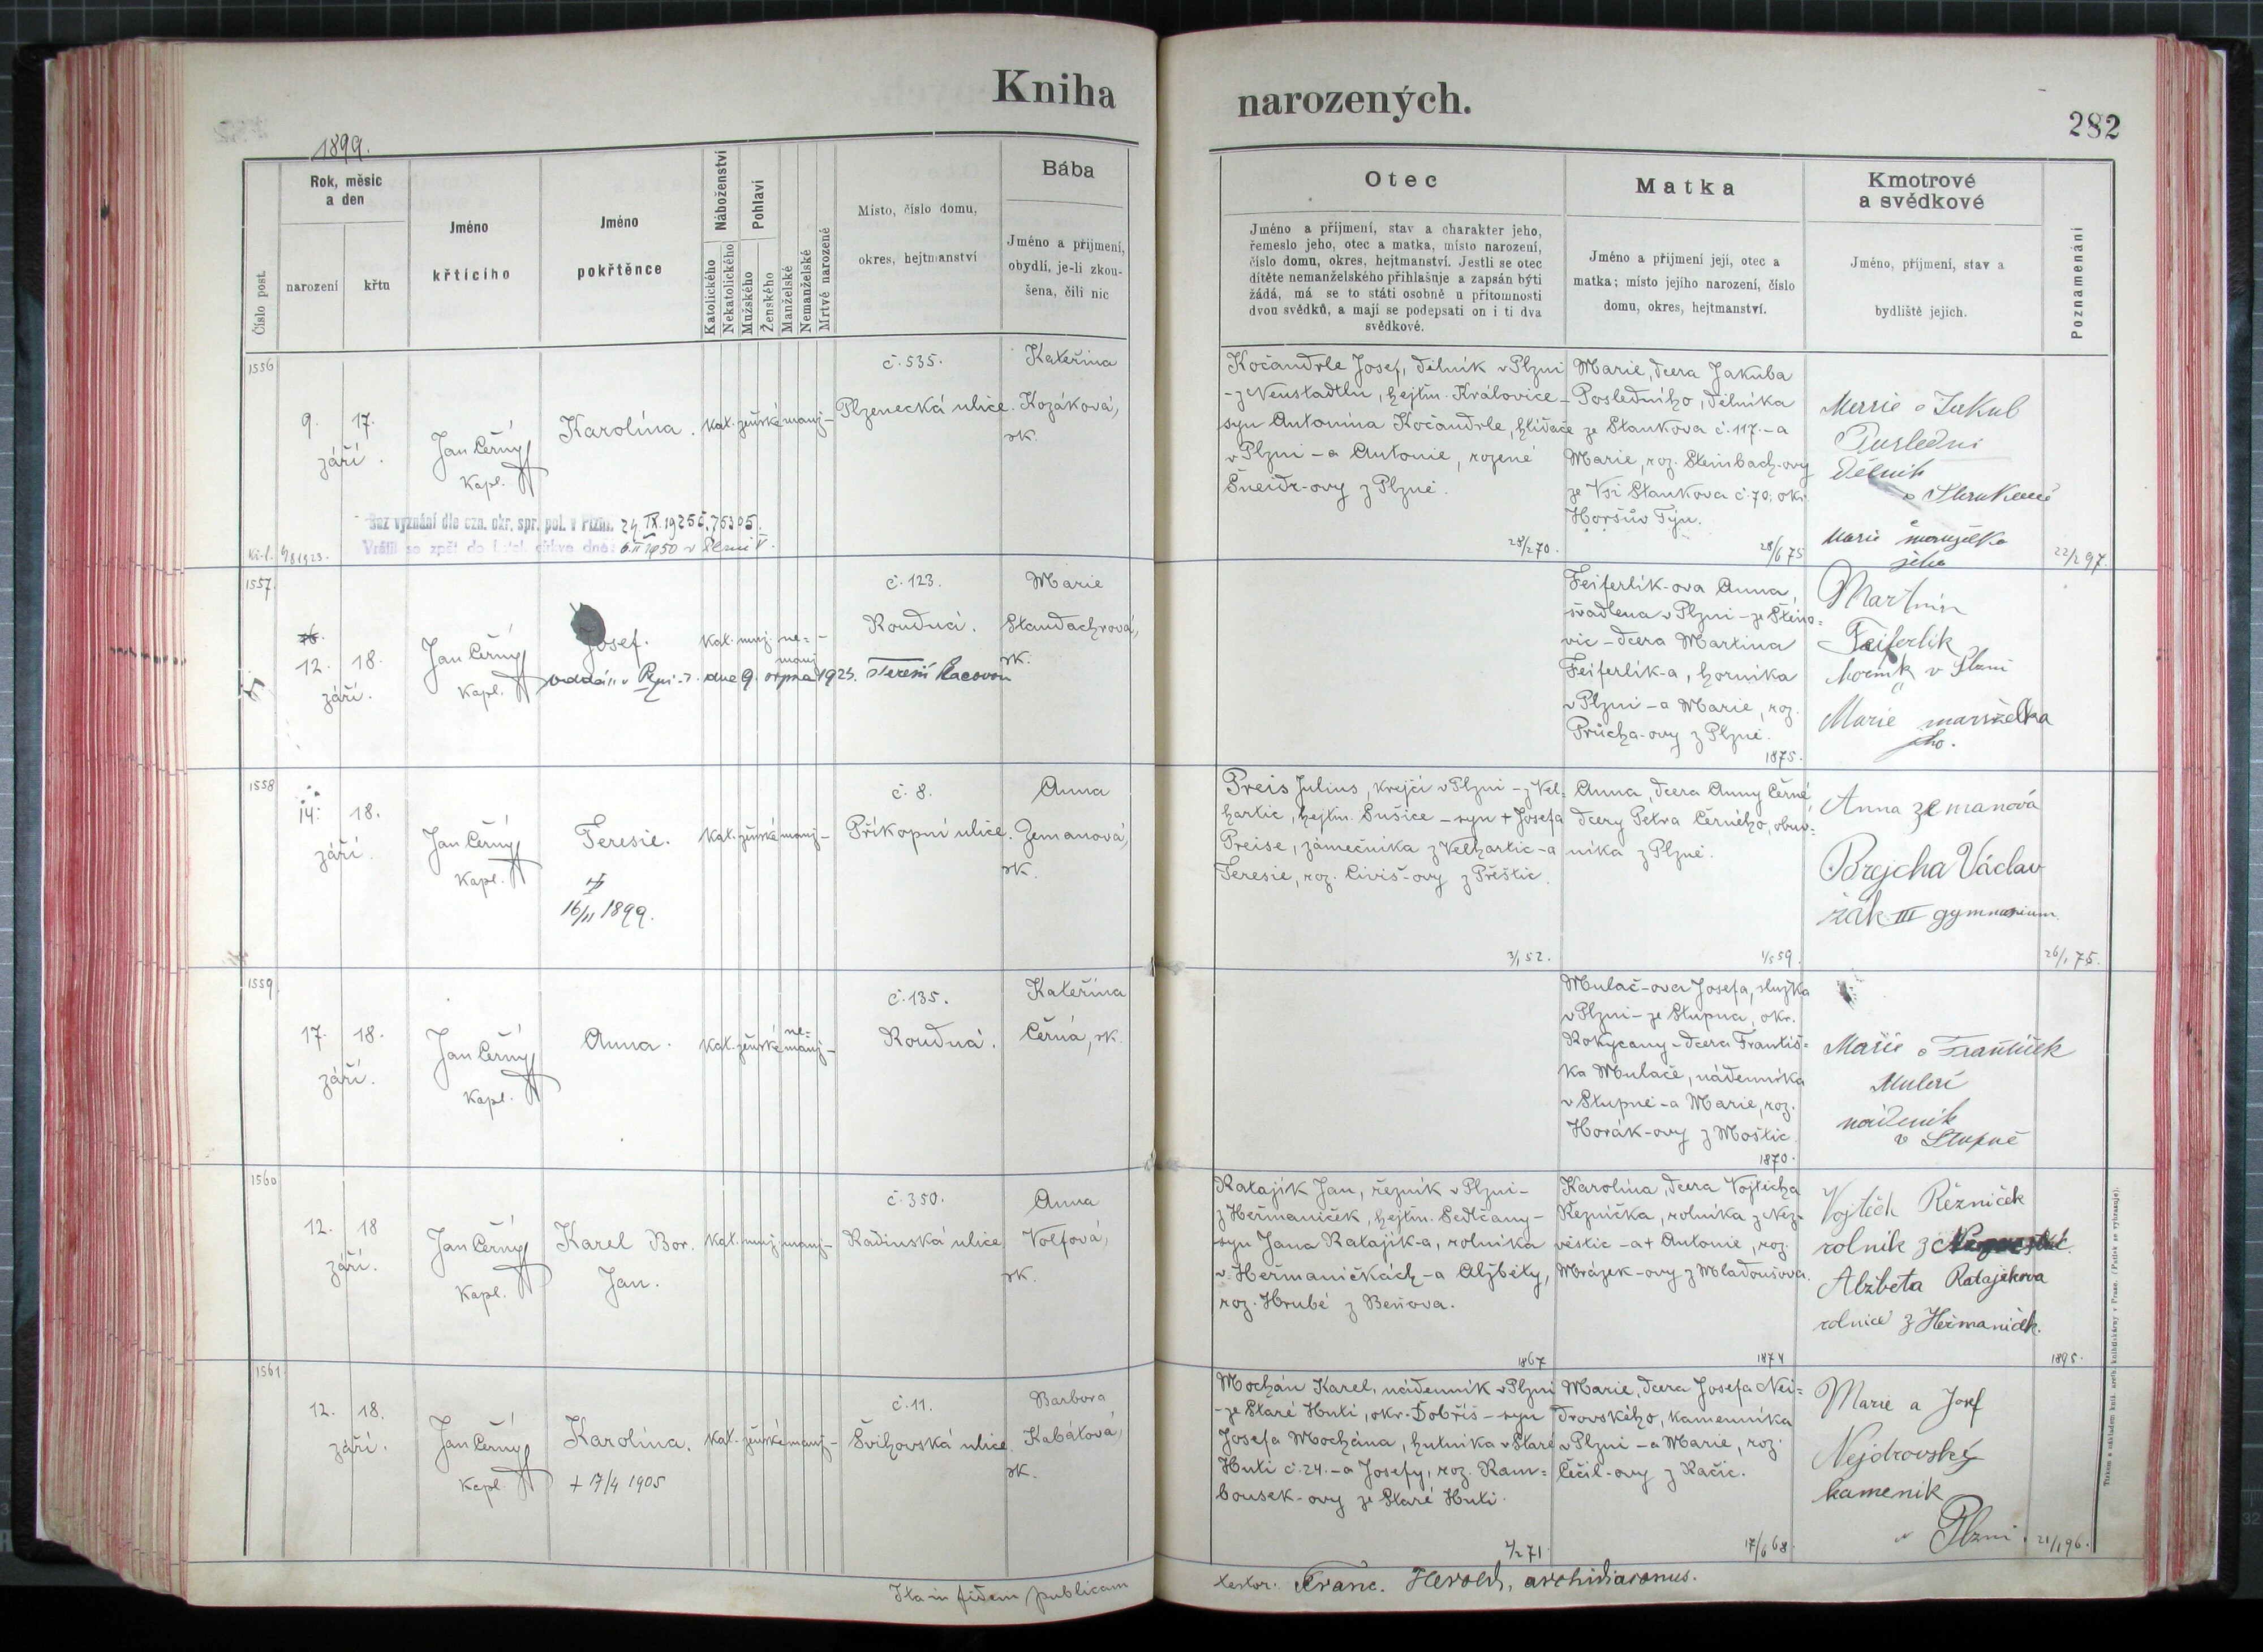 Kniha narozených.
282
1899.
Číslo post.
Rok, měsíc
a den
narození
křtu
Jméno
křtícího
Jméno
pokřtěnce
Náboženství
Katolického
Nekatolického
Pohlaví
Mužského
Ženského
Manželské
Nemanželské
Mrtvě narozené
Místo, číslo domu,
okres, hejtmanství
Bába
Jméno a příjmení,
obydlí, je-li zkou-
šena, čili nic
Otec
Jméno a příjmení, stav a charakter jeho,
řemeslo jeho, otec a matka, místo narození,
číslo domu, okres, hejtmanství. Jestli se otec
dítěte nemanželského přihlašuje a zapsán býti
žádá, má se to státi osobně u přítomnosti
dvou svědků, a mají se podepsati on i ti dva
svědkové.
Matka
Jméno a příjmení její, otec a
matka; místo jejího narození, číslo
domu, okres, hejtmanství.
Kmotrové
a svědkové
Jméno, příjmení, stav a
bydliště jejich.
Poznamenání
1556
9. 17.
září.
Jan Černý
Kapl.
Karolína.
Kat. ženské manž. -
č. 535.
Plzenecká ulice.
Kateřina
Kozáková,
zk.
Kočandrle Josef, dělník v Plzni
- z Neustadtlu, hejtm. Královice -
syn Antonína Kočandrle, hlídače
v Plzni - a Antonie, rozené
Šneidr-ovy z Plzně.
28/2 70.
Marie, dcera Jakuba
Posledního, dělníka
ze Stankova č. 117. - a
Marie, roz. Steinbach-ovy
ze Vsi Stankova č. 70, okr.
Horšův Týn.
28/6 75
Marie a Jakub
Poslední
Dělník
Marie manželka
jeho
22/2 97.
Bez vyznání dle ozn. okr. spr. pol. v Plzni. 24. IX. 1925 č. 75305.
Vrátil se zpět do katol. církve dne: 6. II 1950 v Plzni V.
1557
12. 18.
září.
Jan Černý
Kapl.
Josef.
Kat. muž. ne-
manž. -
č. 123.
Roudná.
Marie
Standachrová,
zk.
oddán v Plzni dne 9. srpna 1925.
Feiferlík-ova Anna,
švadlena v Plzni - ze Štěno-
vic - dcera Martina
Feiferlík-a, horníka
v Plzni - a Marie, roz.
Průcha-ovy z Plzně.
1875.
Martin
Feiferlík
horník v Plzni
Marie manželka
jeho.
1558
14. 18.
září.
Jan Černý
Kapl.
Teresie.
16/11 1899.
Kat. ženské manž. -
č. 8.
Příkopní ulice.
Anna
Zemanová,
zk.
Preis Julius, krejčí v Plzni - z Vel-
hartic, hejtm. Sušice - syn + Josefa
Preise, zámečníka z Velhartic - a
Teresie, roz. Civiš-ovy z Přeštic.
3/1 52.
Anna, dcera Anny Černé,
dcery Petra Černého, obuv-
níka z Plzně.
1/5 59.
Anna zemanová
Brejcha Václav
žák III gymnasium.
26/1 75.
1559
17. 18.
září.
Jan Černý
Kapl.
Anna.
Kat. ženské ne-
manž. -
č. 135.
Roudná.
Kateřina
Černá, zk.
Mulač-ova Josefa, služka
v Plzni - ze Stupna, okr.
Rokycany - dcera Františ-
ka Mulače, nádenníka
v Stupně - a Marie, roz.
Horák-ovy z Moštic.
1870.
Marie a František
nádeník
v Stupně
1560
12. 18
září.
Jan Černý
Kapl.
Karel Bor.
Jan.
Kat. muž. manž. -
č. 350.
Radinská ulice.
Anna
Volfová,
zk.
Ratajík Jan, řezník v Plzni -
z Heřmaniček, hejtm. Sedlčany -
syn Jana Ratajík-a, rolníka
v Heřmaničkách - a Alžběty,
roz. Hrubé z Beňova.
1867
Karolína, dcera Vojtěcha
Řezníčka, rolníka z Nez-
věstic - a + Antonie, roz.
Mrázek-ovy z Mladoušova.
1874
Vojtěch Řezníček
rolník z
Alžběta Ratajíkova
rolnice z Heřmaniček.
1895.
1561
12. 18.
září.
Jan Černý
Kapl.
Karolína.
+ 17/4 1905
Kat. ženské manž. -
č. 11.
Švihovská ulice.
Barbora
Kabátová,
zk.
Mochán Karel, nádenník v Plzni
- ze Staré Huti, okr. Dobříš - syn
Josefa Mochána, hutníka v Staré
Huti č. 24. - a Josefy, roz. Ram-
bousek-ovy ze Staré Huti.
2/2 71.
Marie, dcera Josefa Nei-
drovského, kamenníka
v Plzni - a Marie, roz.
Čečil-ovy z Račic.
17/6 68.
Marie a Josef
Nejdrovský
kamenik
v Plzni.
21/1 96.
Ita in fidem publicam
testor. Franc. Herold, archidiaconus.